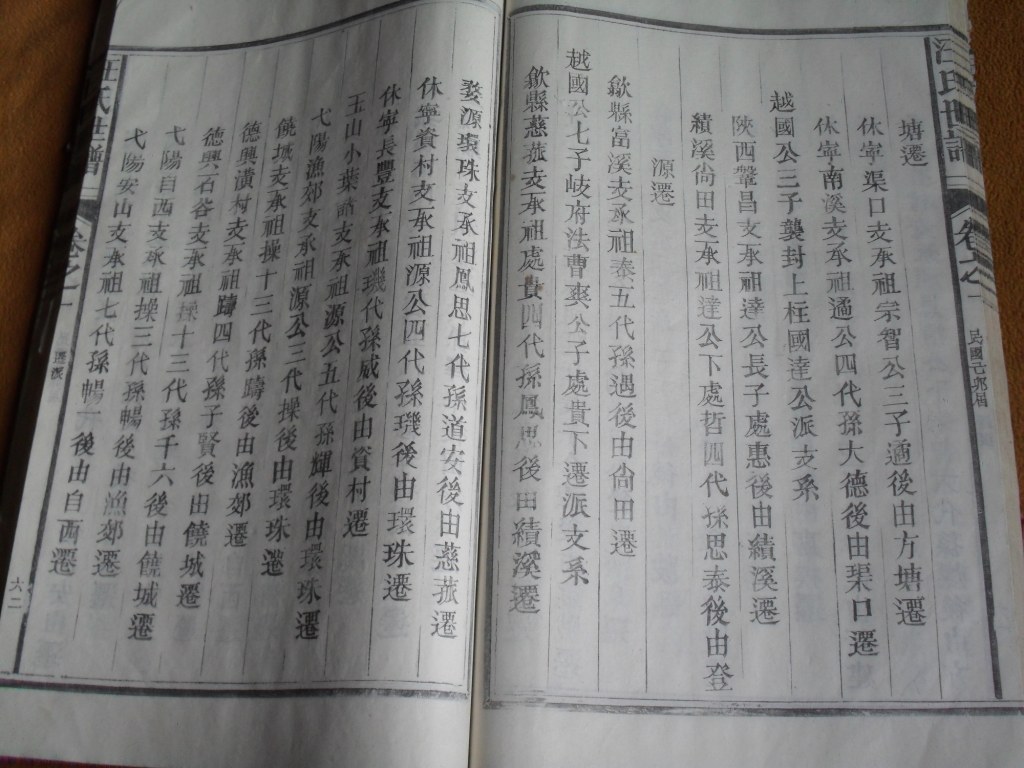 汪氏世譜
卷之一
民國己卯屆
塘遷
休寧渠口支承祖宗智公三子適後由方塘遷
休寧南溪支承祖適公四代孫大德後由渠口遷
越國公三子襲封上柱國達公派支系
陝西鞏昌支承祖達公長子處惠後由績溪遷
績溪尙田支承祖達公下處哲四代孫思泰後由登
源遷
歙縣富溪支承祖泰五代孫遇後由尙田遷
越國公七子岐府法曹爽公子處貴下遷派支系
歙縣慈菰支承祖處貴四代孫鳳思後由績溪遷
婺源環珠支承祖鳳思七代孫道安後由慈菰遷
休寧資村支承祖源公四代孫璣後由環珠遷
休寧長豐支承祖璣代孫咸後由資村遷
玉山小葉 支承祖源公五代孫輝後由環珠遷
弋陽漁郊支承祖源公三代操後由環珠遷
饒城支承祖操十三代孫躊後由漁郊遷
德興潢村支承祖躊四代孫子賢後由饒城遷
德興石谷支承祖操十三代孫千六後由饒城遷
弋陽自西支承祖操三代孫暢後由漁郊遷
弋陽安山支承祖七代孫暢一後由自西遷
汪氏世譜
卷之一
遷派
六二